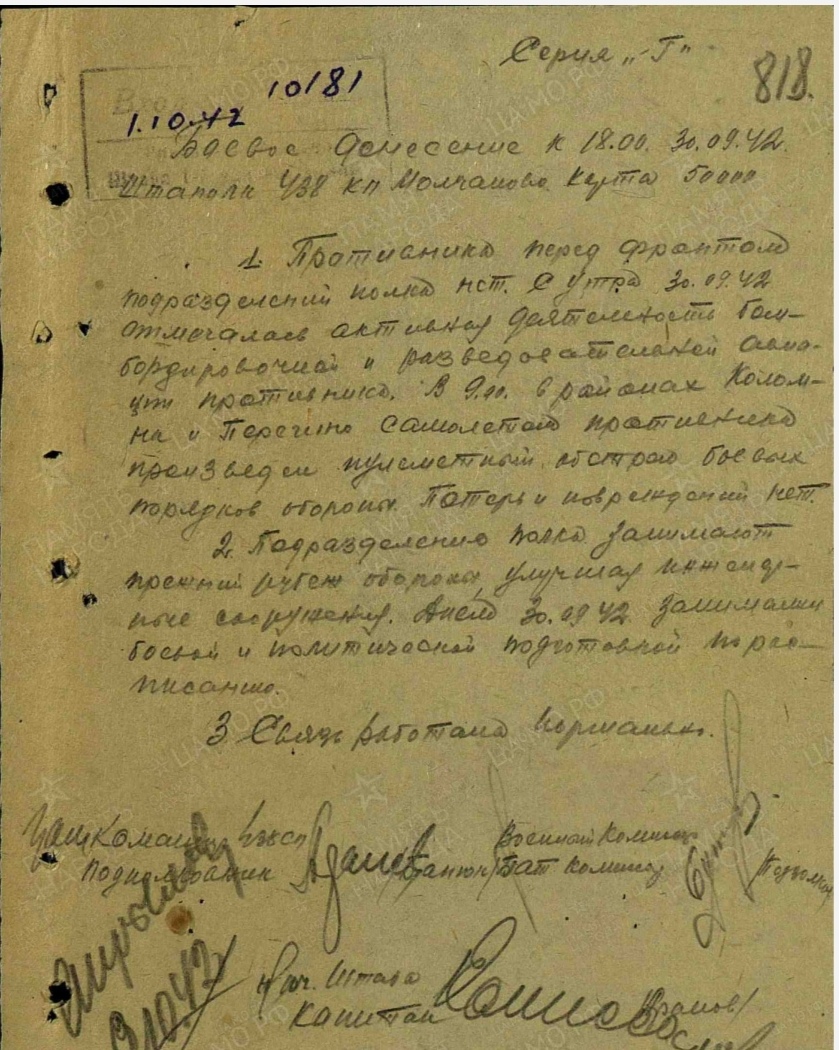 Серия "Г"
818.
10/81
1.10.42
Боевое донесение к 18.00. 30.09.42.
Штаполк 438 кп Молчаново Карта 50000
1. Противника перед фронтом
подразделений полка нет. С утра 30.09.42
отмечалась активная деятельность бом-
бардировочной и разведовательной авиа-
ции противника. В 9.00. в районах Колом-
на и Перечино самолетом противника
произведен пулеметный обстрел боевых
порядков обороны. Потерь и повреждений нет.
2. Подразделения полка занимают
прежний рубеж обороны, улучшая инженер-
ные сооружения. Днем 30.09.42 занимались
боевой и политической подготовкой по рас-
писанию.
3 Связь работала нормально.
Команд
Военный Комиссар
Подполковник
Бат Комиссар
Нач. Штаба
Капитан